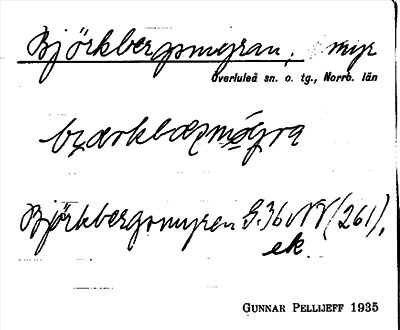 Björkbergsmyran, myr
Överluleå sn. o. tg., Norrb. län
Björkbergsmyren G.36 NV (261),
ek.
GUNNAR PELLIJEFF 1935